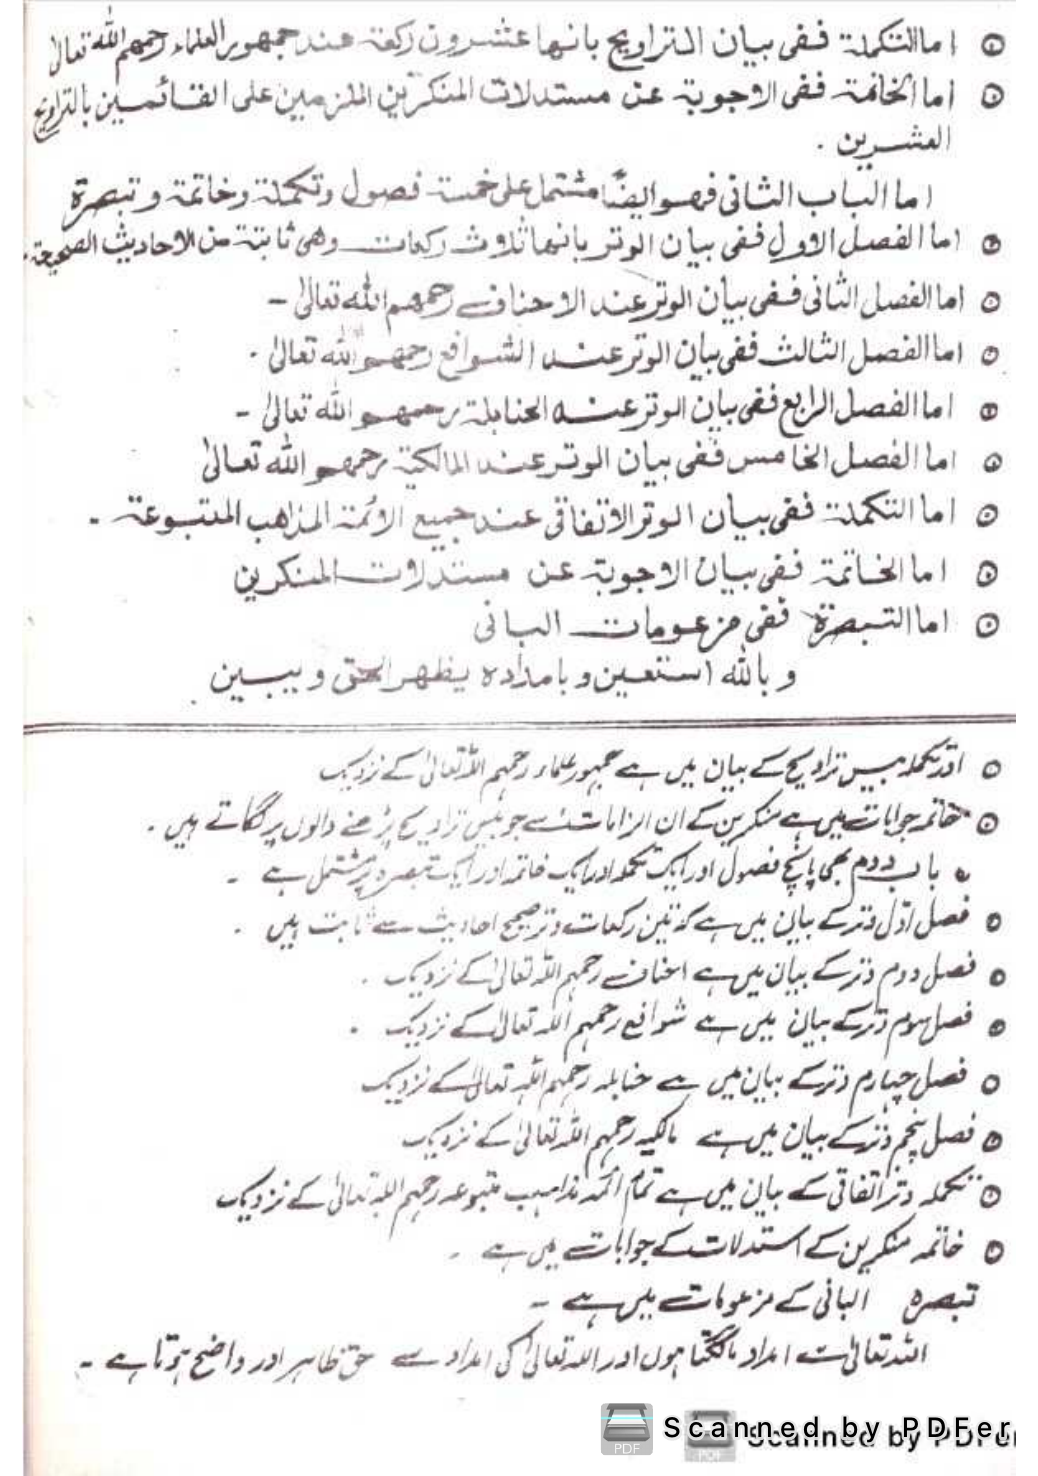 اما التكملة ففى بيان التراويح بانها عشرون ركعة عند جمهور العلماء رحمهم الله تعالىٰ
اما الخاتمة ففى الاجوبة عن مستدلات المنكرين الملزمين على القائمين بالتراويح
العشرين .
اما الباب الثانى فهو ايضًا مشتمل على خمسة فصول وتكملة وخاتمة و تبصرة
اما الفصل الاول ففى بيان الوتر بانها ثلاث ركعات وهى ثابتة من الاحاديث الصحيحة .
اما الفصل الثانى ففى بيان الوتر عند الاحناف رحمهم الله تعالىٰ -
اما الفصل الثالث ففى بيان الوتر عند الشوافع رحمهم الله تعالىٰ .
اما الفصل الرابع ففى بيان الوتر عند الحنابلة رحمهم الله تعالىٰ -
اما الفصل الخامس ففى بيان الوتر عند المالكية رحمهم الله تعالىٰ
اما التكملة ففى بيان الوتر الاتفاقى عند جميع الائمة المذاهب المتبوعة -
اما الخاتمة ففى بيان الاجوبة عن مستدلات المنكرين
اما التبصرة ففى مزعومات البانى
و بالله استعين و بامداده يظهر الحق و يبين .
اور تکملہ بیس تراویح کے بیان میں ہے جمہور علماء رحمہم اللہ تعالیٰ کے نزدیک
خاتمہ جوابات میں ہے منکرین کے ان الزامات سے جو بیس تراویح پڑھنے والوں پر لگاتے ہیں ۔
باب دوم بھی پانچ فصول اور ایک تکملہ اور ایک خاتمہ اور ایک تبصرہ پر مشتمل ہے ۔
فصل اوّل وتر کے بیان میں ہے کہ تین رکعات وتر صحیح احادیث سے ثابت ہیں ۔
فصل دوم وتر کے بیان میں ہے احناف رحمہم اللہ تعالیٰ کے نزدیک ۔
فصل سوم وتر کے بیان میں ہے شوافع رحمہم اللہ تعالیٰ کے نزدیک ۔
فصل چہارم وتر کے بیان میں ہے حنابلہ رحمہم اللہ تعالیٰ کے نزدیک
فصل پنجم وتر کے بیان میں ہے مالکیہ رحمہم اللہ تعالیٰ کے نزدیک
تکملہ وتر اتفاقی کے بیان میں ہے تمام ائمہ مذاہب متبوعہ رحمہم اللہ تعالیٰ کے نزدیک
خاتمہ منکرین کے استدلات کے جوابات میں ہے ۔
تبصرہ البانی کے مزعومات میں ہے ۔
اللہ تعالیٰ سے امداد مانگتا ہوں اور اللہ تعالیٰ کی امداد سے حق ظاہر اور واضح ہوتا ہے ۔
Scanned by PDFer
Scanned by PDFer